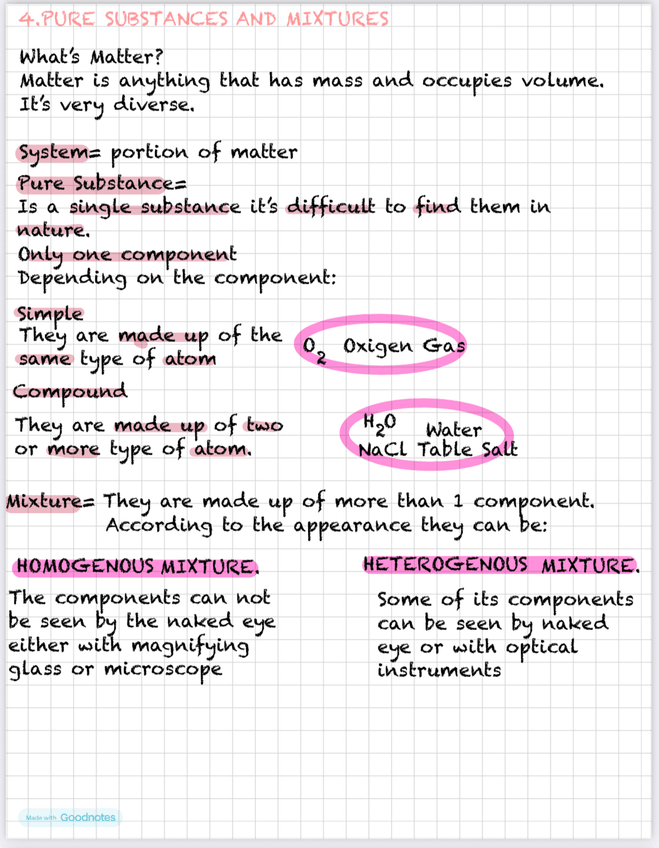 4.PURE SUBSTANCES AND MIXTURES
What's Matter?
Matter is anything that has mass and occupies volume.
It's very diverse.
System= portion of matter
Pure Substance=
Is a single substance it's difficult to find them in
nature.
Only one component
Depending on the component:
Simple
They are made up of the
same type of atom
O2 Oxigen Gas
Compound
They are made up of two
or more type of atom.
H2O Water
NaCl Table Salt
Mixture= They are made up of more than 1 component.
According to the appearance they can be:
HOMOGENOUS MIXTURE.
The components can not
be seen by the naked eye
either with magnifying
glass or microscope
HETEROGENOUS MIXTURE.
Some of its components
can be seen by naked
eye or with optical
instruments
Made with Goodnotes